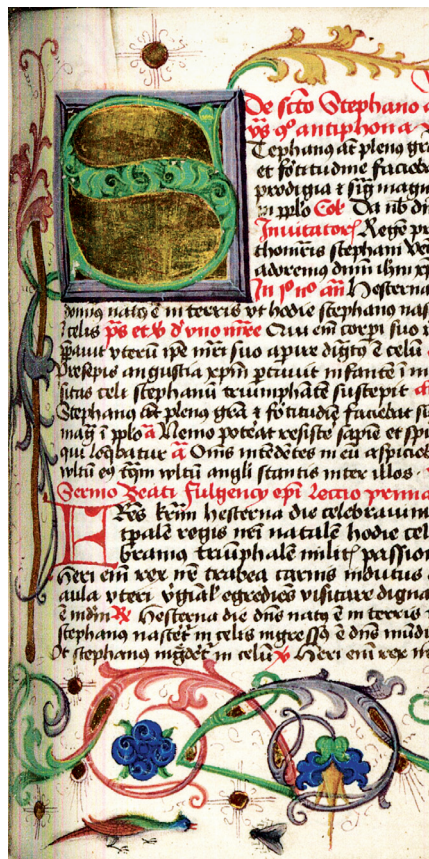 De scto Stephano
ys qo antiphona
Tephanus at plenus gra
et fortitudine facieb
prodigia t sig magn
in pplo Col Da nb dn
Invitator Regē pr
thomiris stephani ver
adoremo dnm ihm xp
In jo no an Hesterna
domius natq ē in terris vt hodie stephanus nas
celis ps et v d vno mre Qui em corpi suo
pavit vterū ipe mri suo apire digto ē celū
Presepis angustia xpm ptinuit infante i
situs celi stephanū triumphātē suscepit
Stephanus at plenus gra t fortitudīe faciebat
mag i pplo a Nemo poteat resiste sapie et spi
qui loqbatur a Omis intedētes in eū aspicie
vltū eq tqm vltū angli stantis inter illos
Sermo Beati Fulgency epi Leccio prima
FRes krmi hesterna die celebravim
tpalē regis nri natalē hodie cel
bramo triūphalē milit passion
Heri em rex nr trabea carnis indutus
aula vteri vginal egrediēs visitare digna
ē mdm R Hesterna die dns natq ē in terris
stephanus nasteret in celis ingressq ē dns mūdū
Vt stephanus ingderet in celū v Heri em rex